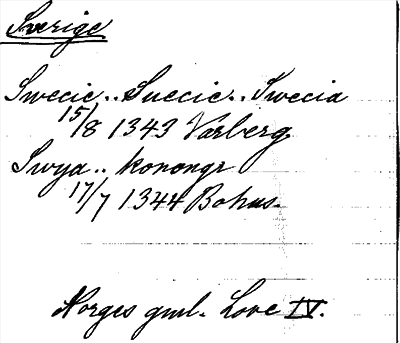 Sverige
Swecie.. Suecie.. Swecia
15/8 1343 Varberg
Swya.. konongr
17/7 1344 Bohus.
Norges gml. Love IV.